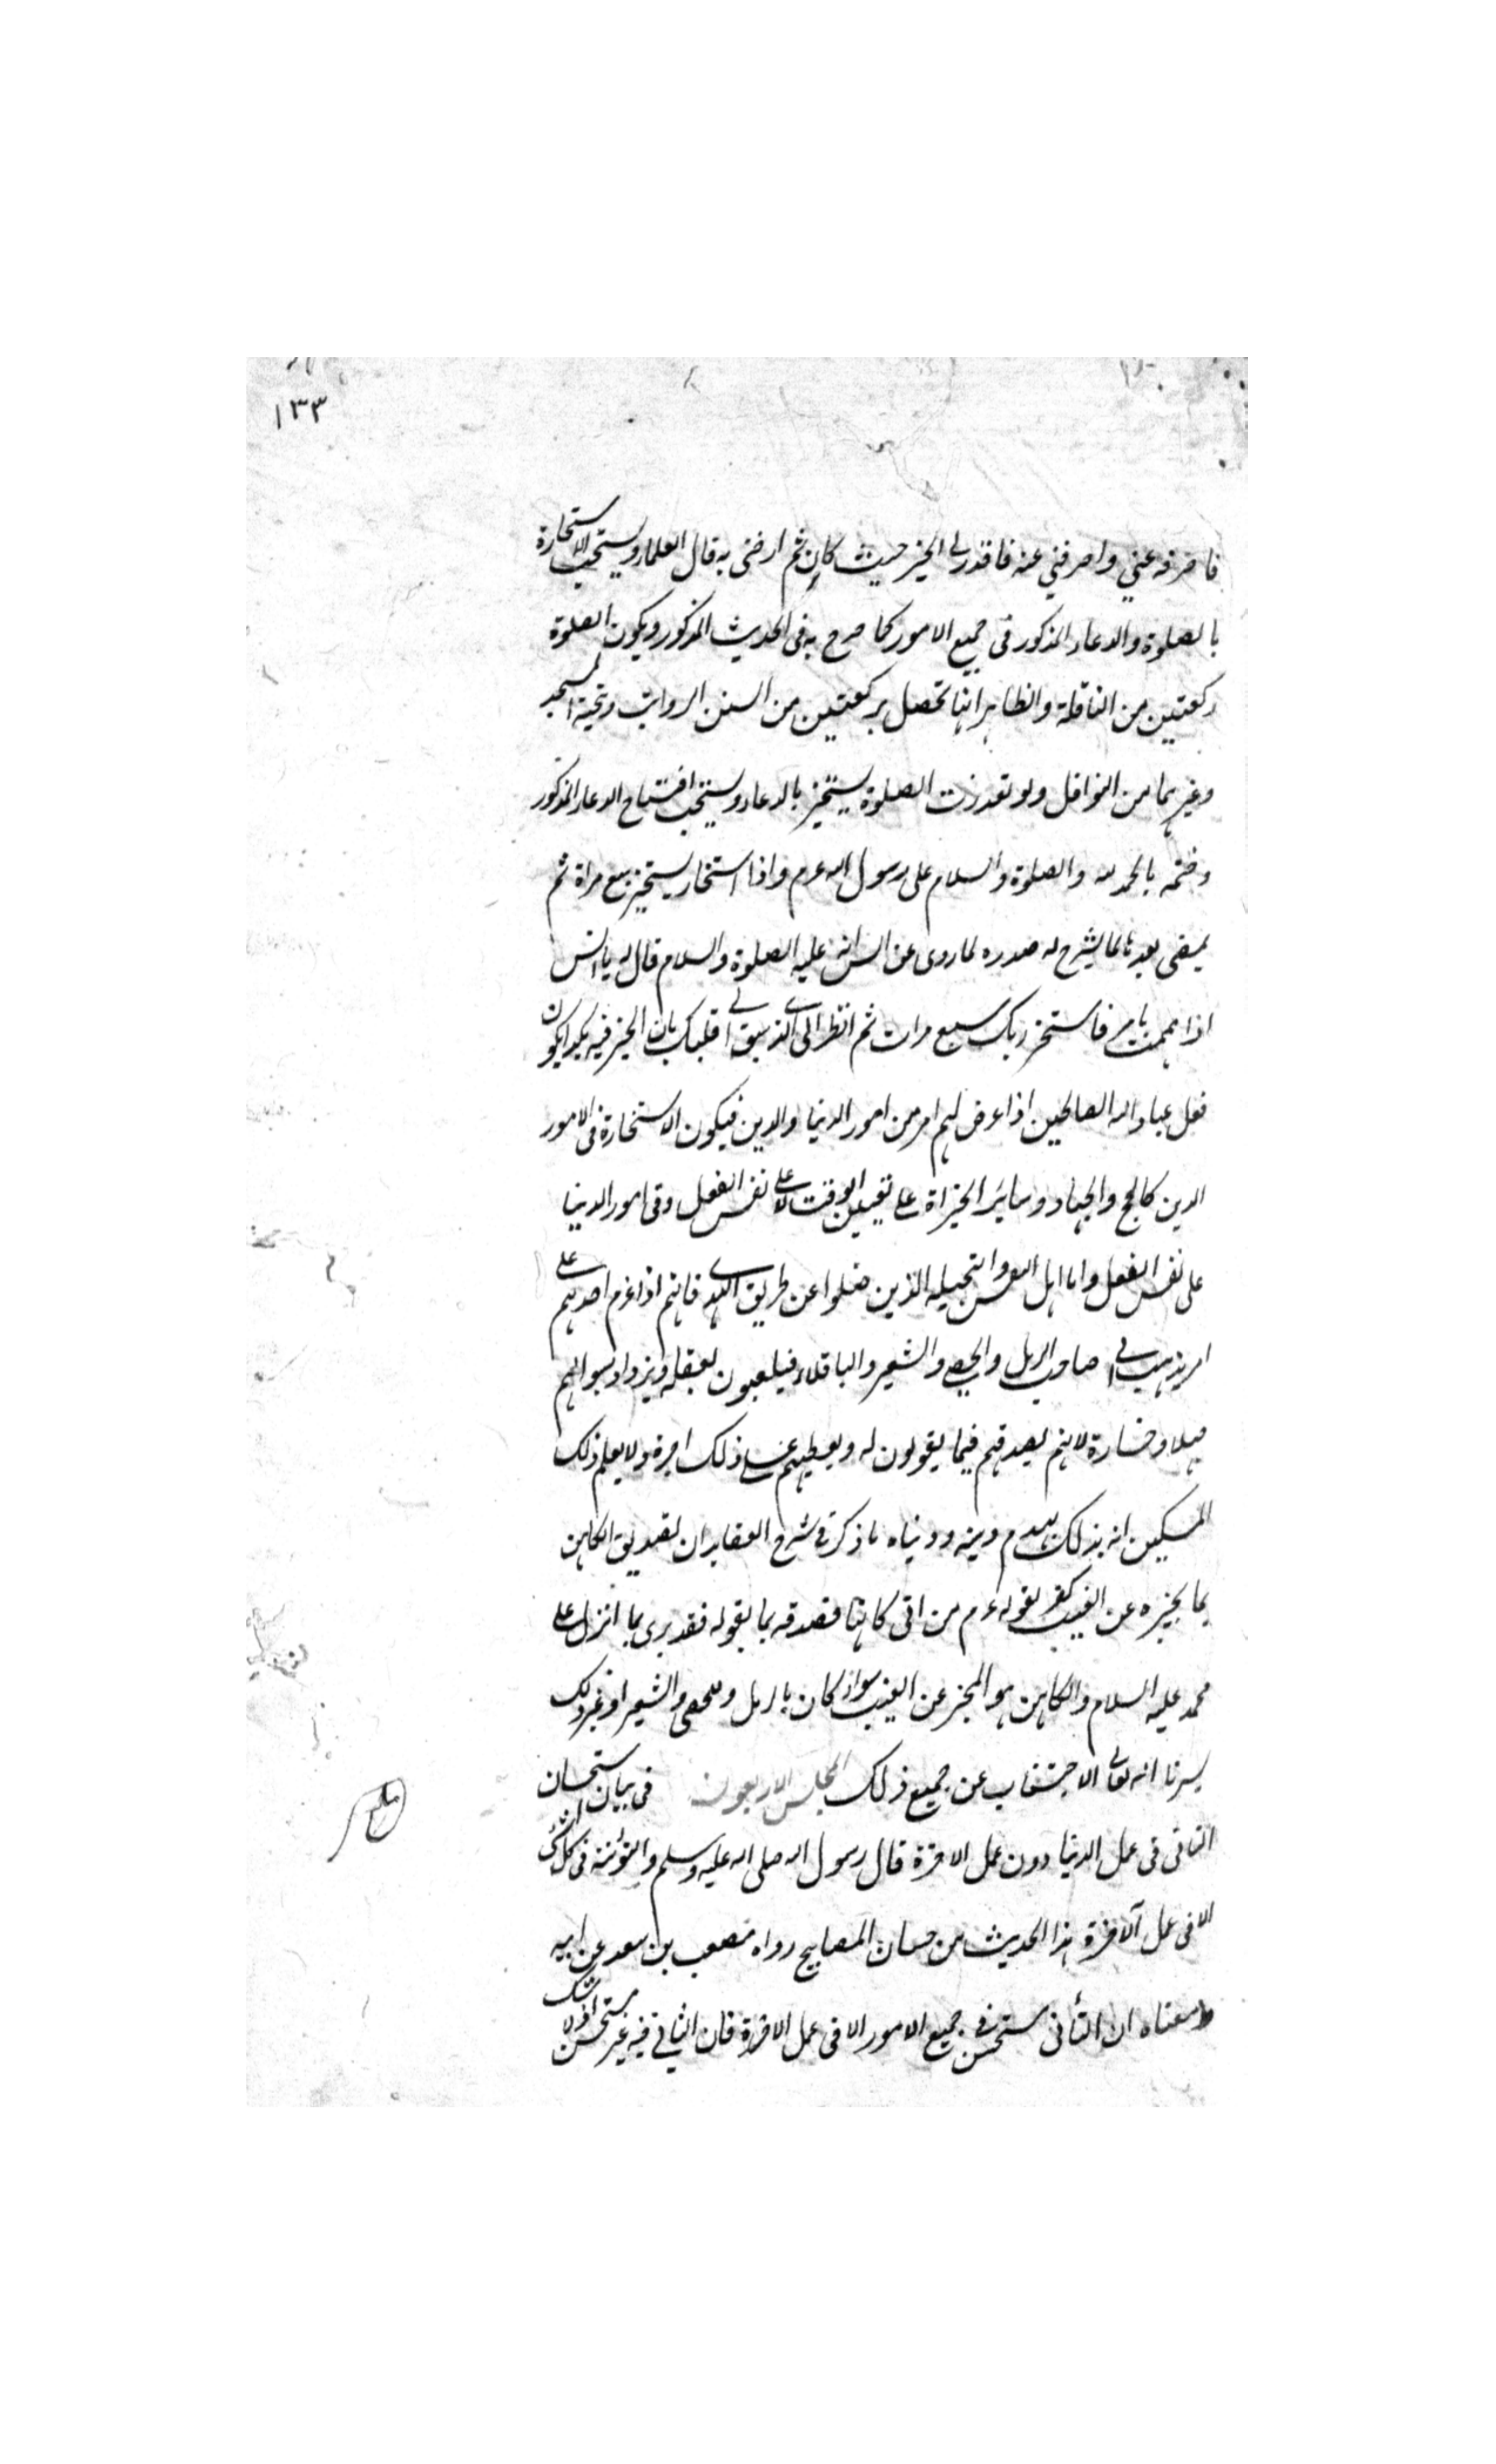 ١٣٣
فاصرفه عني واصرفني عنه فاقدر لي الخير حيث كان ثم ارضني به قال العلماء ويستحب الاستخارة
بالصلوة والدعاء المذكور في جميع الامور كما صرح به في الحديث المذكور ويكون الصلوة
ركعتين من النافلة والظاهر انها تحصل بركعتين من السنن الرواتب وتحية المسجد
وغيرهما من النوافل ولو تعذرت الصلوة يستخير بالدعاء ويستحب افتتاح الدعاء المذكور
وختمه بالحمد لله والصلوة والسلام على رسول الله عم واذا استخار يستخير سبع مراة ثم
يمضى بعدها لما ينشرح له صدره لما روى عن انس انه عليه الصلوة والسلام قال له يا انس
اذا هممت بامر فاستخر ربك سبع مرات ثم انظر الى الذي سبق الى قلبك بان الخير فيه هكذا يكون
فعل عباد الله الصالحين اذا عرض لهم امر من امور الدنيا والدين فيكون الاستخارة في الامور
الدين كالحج والجهاد وسائر الخيراة على تعيين الوقت لا على نفس الفعل وفي امور الدنيا
على نفس الفعل واما اهل والتحيله الذين ضلوا عن طريق الهدى فانهم اذا عزم احدهم على
امر يذهب الى صاحب الرمل والحصى والشعير والباقلاء فيلعبون بعقله ويزداد بسوالهم
جهلا وخسارة لانهم يصدقهم فيما يقولون له ويعطيهم على ذلك اجرة ولا يعلم ذلك
المسكين انه بذلك يهدم دينه ودنياه ما ذكر في شرح العقايد ان تصديق الكاهن
بما يخبره عن الغيب كفر لقوله عم من اتى كاهنا فصدقه بما يقوله فقد برى بما انزل على
محمد عليه السلام والكاهن هو المخبر عن الغيب سواء كان بالرمل والحصى والشعير او غير ذلك
يسرنا الله تعالى الاجتناب عن جميع ذلك المجلس الاربعون في بيان استحسان
التاني في عمل الدنيا دون عمل الاخرة قال رسول الله صلى الله عليه وسلم والتؤدة في كل شئ
الا في عمل الآخرة هذا الحديث من حسان المصابيح رواه مصعب بن سعد عن ابيه
ومعناه ان التأنى مستحسن في جميع الامور الا في عمل الاخرة فان التاني فيه غير مستحسن اذ لا شك
بلغ